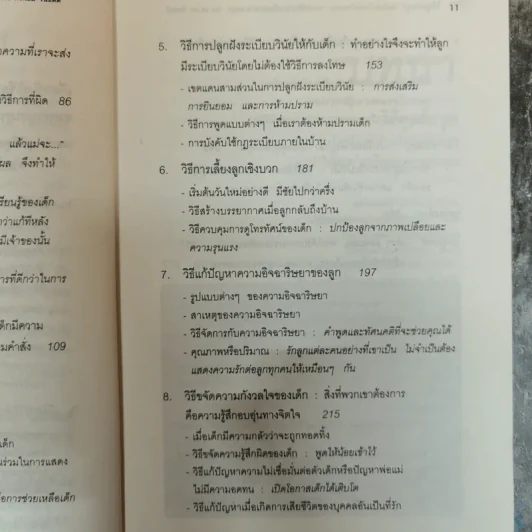 ความที่เราจะส่ง
วิธีการที่ผิด 86
แล้วแม่จะ...
ผล จึงทำให้
เรียนรู้ของเด็ก
ว่าแก้ทีหลัง
มีเจ้าของนั้น
การที่ดีกว่าในการ
เด็กมีความ
มคำสั่ง 109
เด็ก
นร่วมในการแสดง
อการช่วยเหลือเด็ก
11
5. วิธีการปลูกฝังระเบียบวินัยให้กับเด็ก : ทำอย่างไรจึงจะทำให้ลูก
มีระเบียบวินัยโดยไม่ต้องใช้วิธีการลงโทษ 153
- เขตแดนสามส่วนในการปลูกฝังระเบียบวินัย : การส่งเสริม
การยินยอม และการห้ามปราม
- วิธีการพูดแบบต่างๆ เมื่อเราต้องห้ามปรามเด็ก
- การบังคับใช้กฎระเบียบภายในบ้าน
6. วิธีการเลี้ยงลูกเชิงบวก 181
- เริ่มต้นวันใหม่อย่างดี มีชัยไปกว่าครึ่ง
- วิธีสร้างบรรยากาศเมื่อลูกกลับถึงบ้าน
- วิธีควบคุมการดูโทรทัศน์ของเด็ก : ปกป้องลูกจากภาพเปลือยและ
ความรุนแรง
7. วิธีแก้ปัญหาความอิจฉาริษยาของลูก 197
- รูปแบบต่างๆ ของความอิจฉาริษยา
- สาเหตุของความอิจฉาริษยา
- วิธีจัดการกับความอิจฉาริษยา : คำพูดและทัศนคติที่จะช่วยคุณได้
- คุณภาพหรือปริมาณ : รักลูกแต่ละคนอย่างที่เขาเป็น ไม่จำเป็นต้อง
แสดงความรักต่อลูกทุกคนให้เหมือนๆ กัน
8. วิธีขจัดความกังวลใจของเด็ก : สิ่งที่พวกเขาต้องการ
คือความรู้สึกอบอุ่นทางจิตใจ 215
- เมื่อเด็กมีความกลัวว่าจะถูกทอดทิ้ง
- วิธีขจัดความรู้สึกผิดของเด็ก : พูดให้น้อยเข้าไว้
- วิธีแก้ปัญหาความไม่เชื่อมั่นต่อตัวเด็กหรือปัญหาพ่อแม่
ไม่มีความอดทน : เปิดโอกาสเด็กได้เติบโต
- วิธีแก้ปัญหาเมื่อเกิดการเสียชีวิตของบุคคลอันเป็นที่รัก